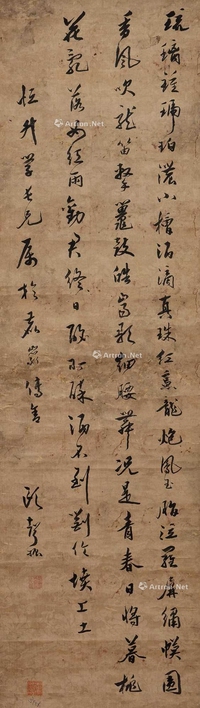 琉璃鍾琥珀濃小槽酒滴真珠紅烹龍炮鳳玉脂泣羅屏繡幙圍
香風吹龍笛擊鼉鼓皓齒歌細腰舞況是青春日將暮桃
花亂落如紅雨勸君終日酩酊醉酒不到劉伶墳上土
恒升學長兄屬於
Artron.Net